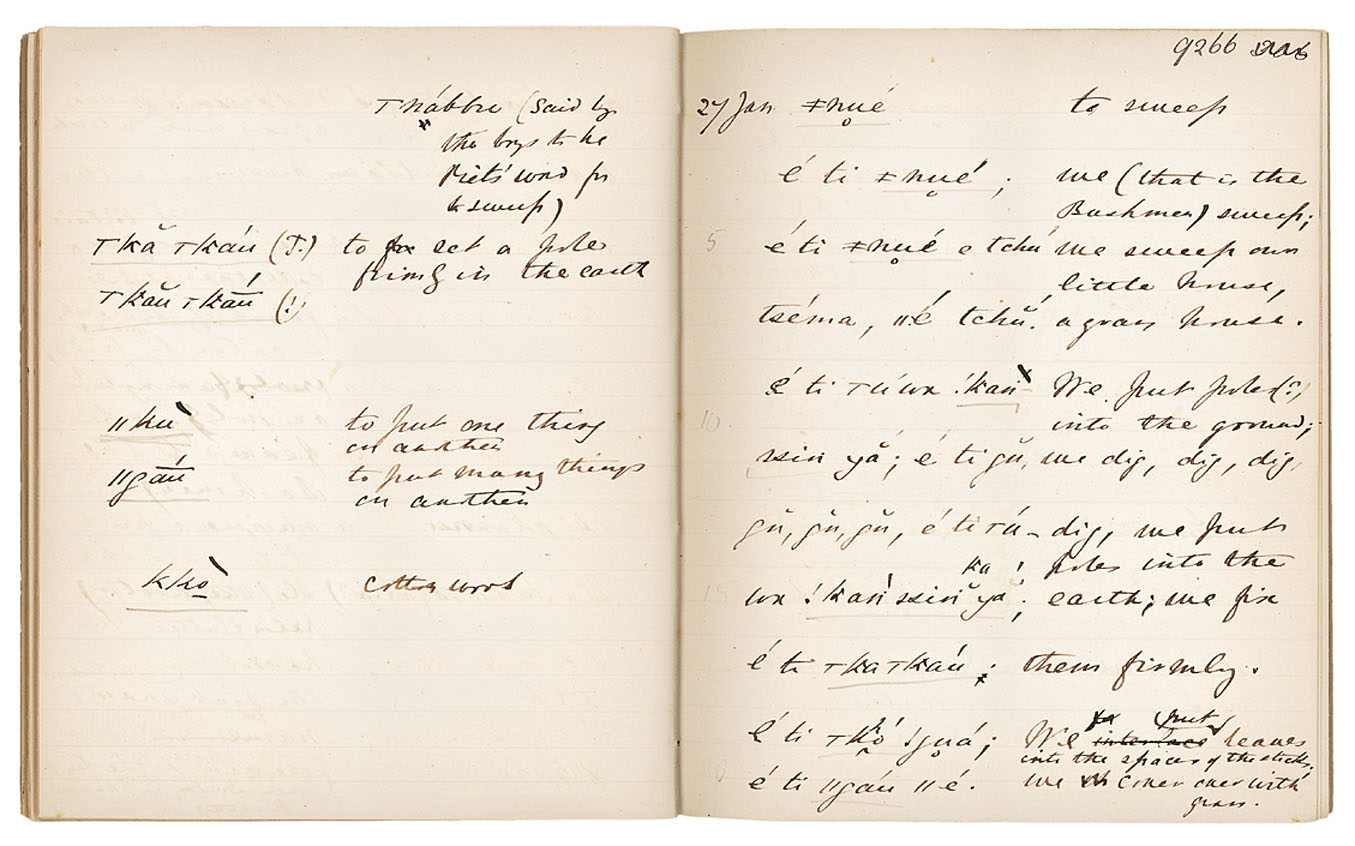 Tnábbu (Said by
the boys to be
Piet's word for
to sweep)
Tkă Tkáu (T.) to set a pole
firmly in the earth
Tkău Tkáu (!)
ǁku to put one thing
on another
ǁgáu to put many things
on another
kko cotton wool
9266
27 Jan ǂnué to sweep
é ti ǂnué; we (that is the
Bushmen) sweep;
5 é ti ǂnué e tchŭ we sweep our
little house,
tséma, ǁé tchŭ. a grass house.
é ti !kau We put poles (?)
10 into the ground;
ssin yă; é ti gŭ, we dig, dig, dig,
gŭ, gŭ, gŭ, é ti dig, we put
ka poles into the
15 !kau ssin yă; earth; we fix
é ti TkaTkáu; them firmly.
put
é ti We interlace leaves
into the spaces of the sticks;
é ti ǁgáu ǁé. we cover over with
grass.